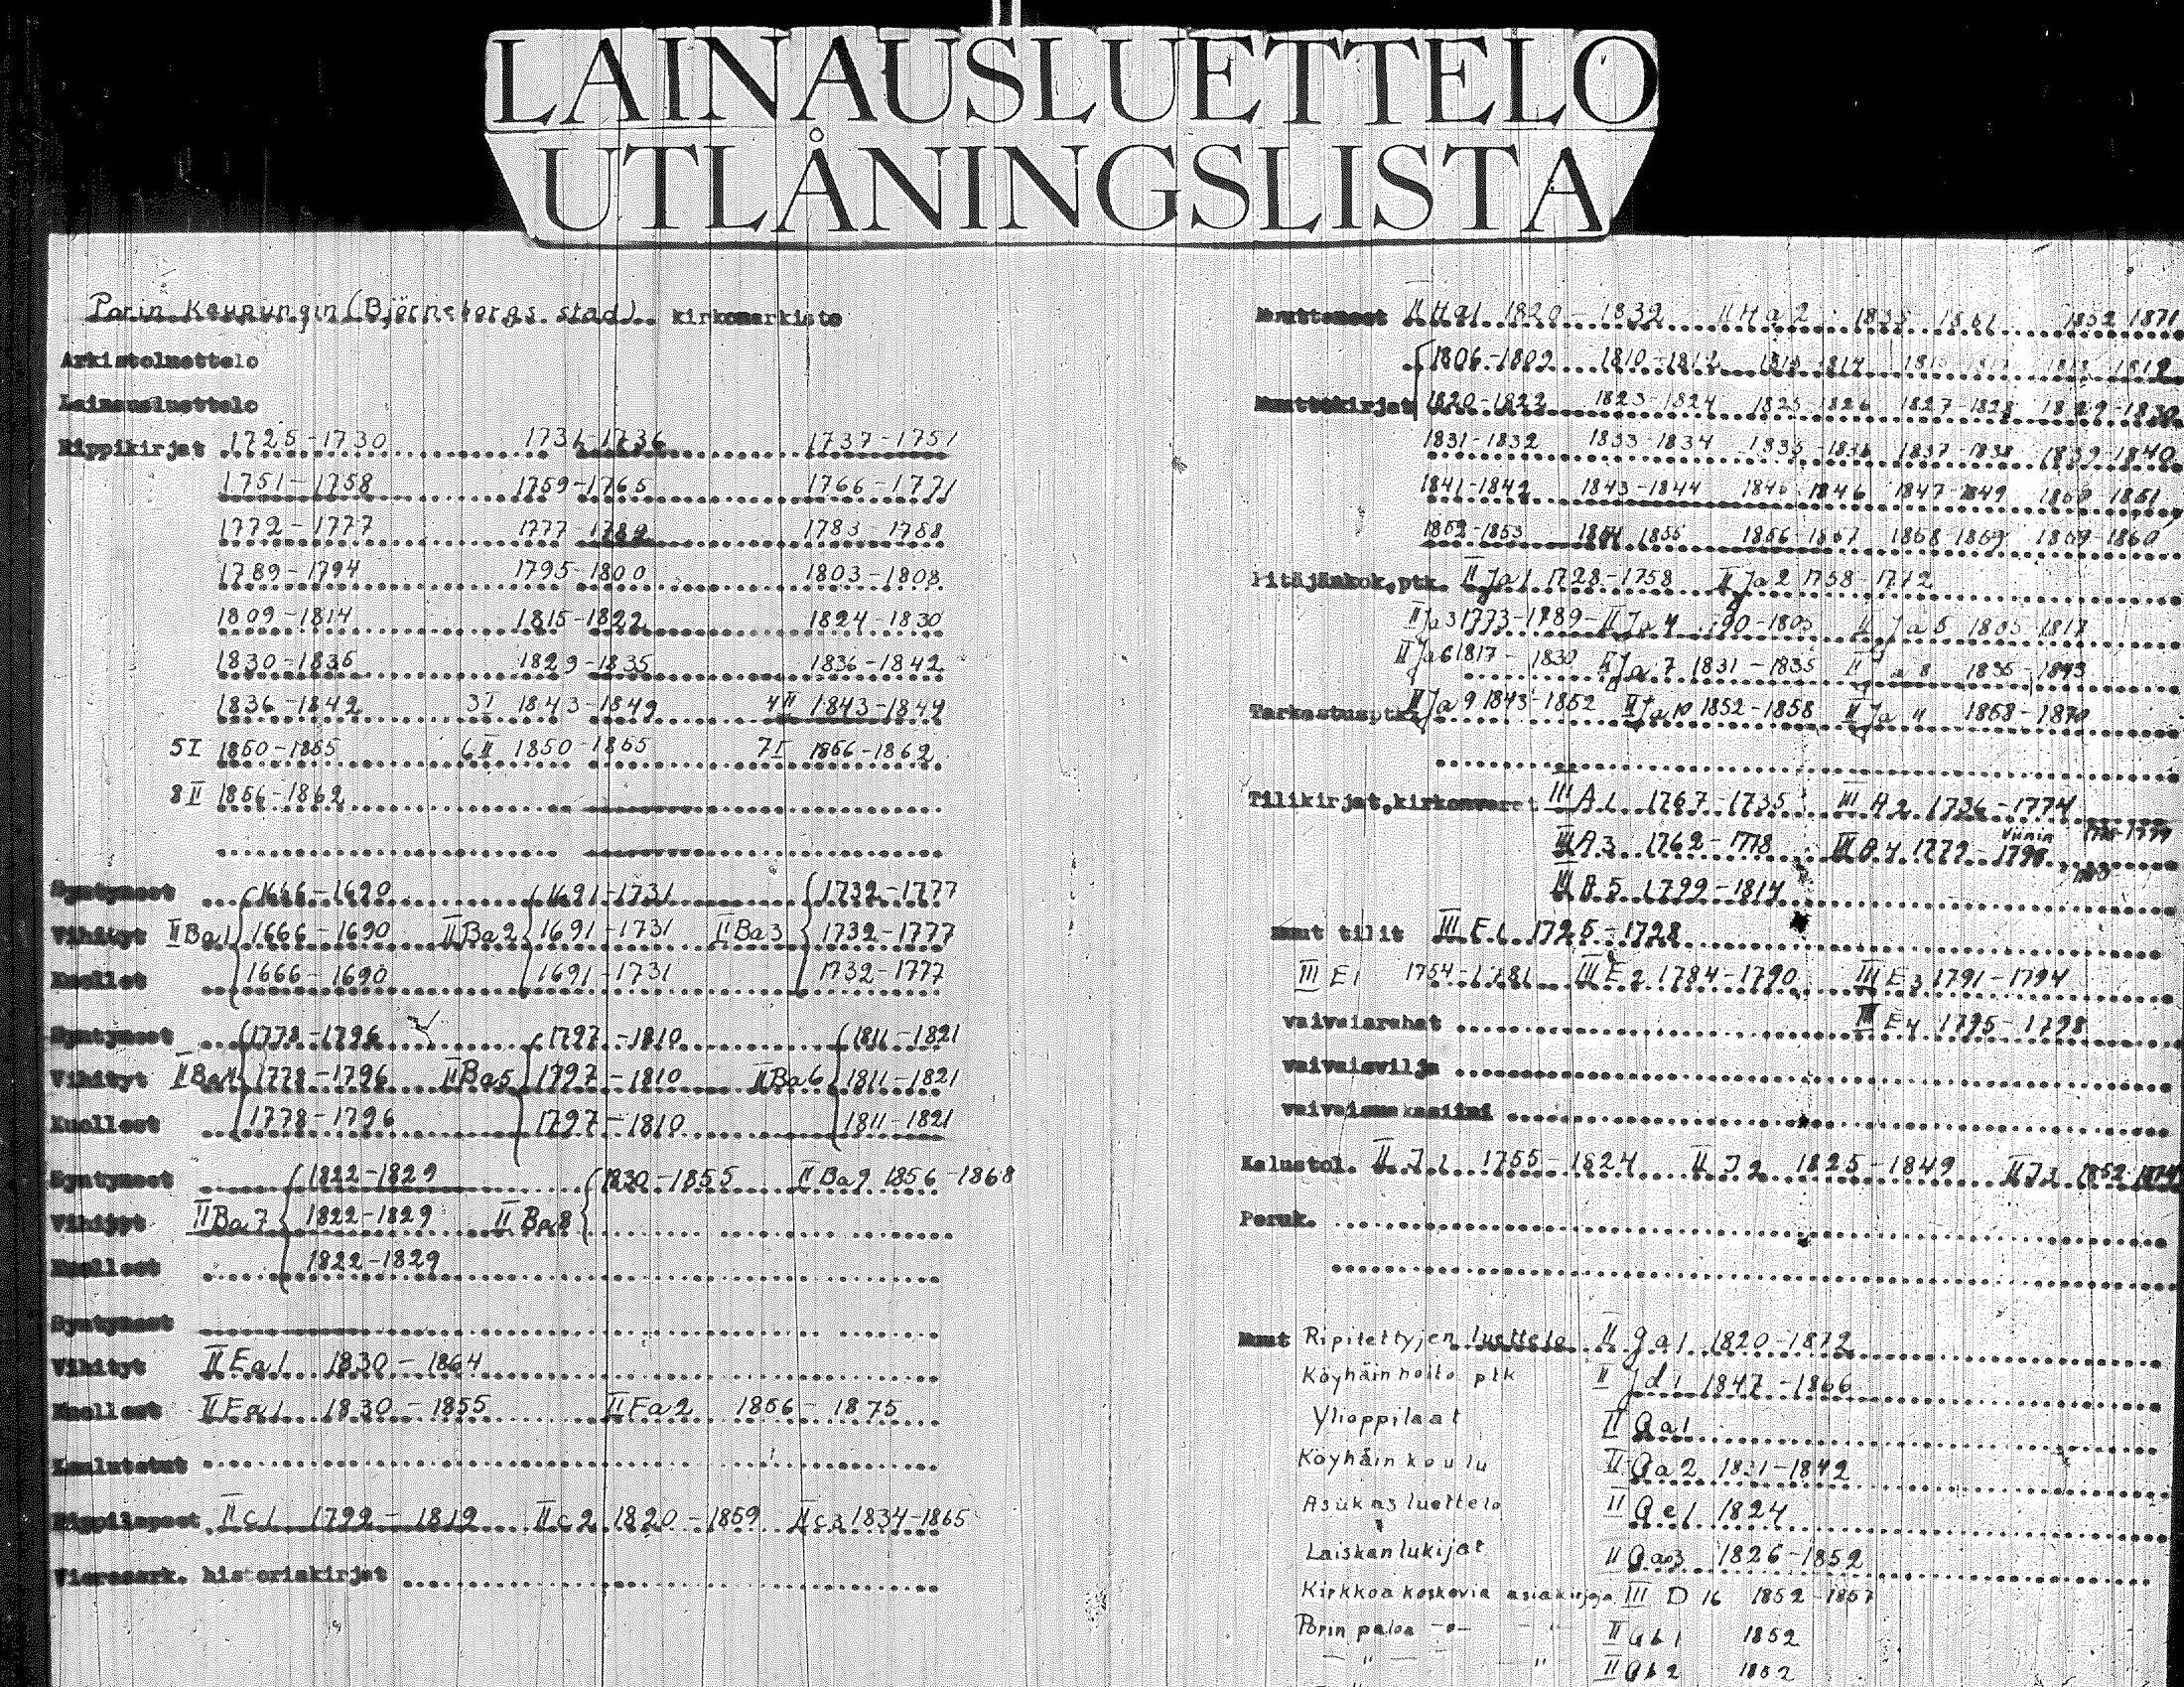 LAINAUSLUETTELO
UTLÅNINGSLISTA
Porin Kaupungin (Björneborgs stad) kirkonarkisto
Arkistoluettelo
Lainausluettelo
Rippikirjat 1725-1730 1731-1736 1737-1751
1751-1758 1759-1765 1766-1771
1772-1777 1777-1782 1783-1788
1789-1794 1795-1800 1803-1808
1809-1814 1815-1822 1824-1830
1830-1835 1829-1835 1836-1842
1836-1842 3I 1843-1849 4II 1843-1844
5I 1850-1855 6II 1850-1855 7I 1856-1862
8II 1856-1862
Syntyneet 1666-1690 1691-1731 1732-1777
Vihityt IIBa1 1666-1690 IIBa2 1691-1731 IIBa3 1732-1777
Kuolleet 1666-1690 1691-1731 1732-1777
Syntyneet 1778-1796 1797-1810 1811-1821
Vihityt IIBa4 1778-1796 IIBa5 1797-1810 IIBa6 1811-1821
Kuolleet 1778-1796 1797-1810 1811-1821
Syntyneet 1822-1829 1830-1855 IIBa9 1856-1868
Vihityt IIBa7 1822-1829 IIBa8
Kuolleet 1822-1829
Syntyneet
Vihityt IIEa1 1830-1864
Kuolleet IIFa1 1830-1855 IIFa2 1856-1875
Kuulutetut
Rippilapset IIc1 1792-1819 IIc2 1820-1859 IIc3 1834-1865
Vierasark. historiakirjat
Muuttaneet IIHa1 1820-1832 IIHa2 1835-1861 1852-1871
1806-1802 1810-1812 1813-1814
Muuttokirjat 1820-1822 1823-1824 1825-1826 1827-1828 1829-1830
1831-1832 1833-1834 1835-1836 1837-1838 1839-1840
1841-1842 1843-1844 1845-1846 1847-1849 1850-1851
1852-1853 1854 1855 1856-1857 1858-1859 1859-1860
Pitäjänkok.ptk. IIJa1 1728-1758 IIJa2 1758-1772
IIJa3 1773-1789 IIJa4 90-1805 IIJa5 1805-1817
IIJa6 1817-1830 IIJa7 1831-1835 IIJa8 1835-1843
Tarkastusptk. IIJa9 1843-1852 IIJa10 1852-1858 IIJa11 1858-1870
Tilikirjat,kirkonvarat IIIA1 1767-1735 IIIA2 1736-1774
IIIA3 1762-1778 IIIA4 1779-1798
IIIA5 1799-1814
Muut tilit IIIE1 1725-1728
IIIE1 1754-1781 IIIE2 1784-1790 IIIE3 1791-1794
vaivaisrahat IIIE4 1795-1798
vaivaisvilja
vaivaismakasiini
Kalustol. IIJ1 1755-1824 IIJ2 1825-1849 IIJ3
Peruk.
Muut Ripitettyjen luettelo II Ga1 1820-1872
Köyhäinhoito ptk II Jd1 1847-1866
Ylioppilaat II Qa1
Köyhäin koulu II Qa2 1831-1842
Asukasluettelo II Qe1 1824
Laiskanlukijat II Qa3 1826-1852
Kirkkoa koskevia asiakirjoja III D 16 1852-1857
Porin paloa -"- -"- II Qb1 1852
-"- -"- II Qb2 1852